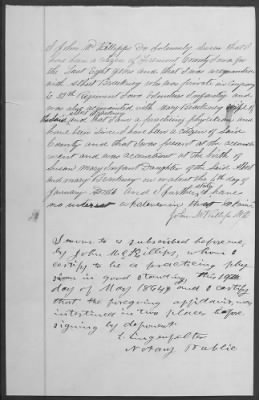 I John McKillips do solemnly swear that I
have been a citizen of Fremont County Iowa for
the last Eight years and that I was acquainted
with Albert Brockway who was private in Company
29th Regiment Iowa Volunteer Infantry and
was also acquainted with Mary Brockway wife of
the said Albert Brockway
and that I am a practicing physician and
have been since I have been a citizen of said
County and that I was present at the
and was accoucheur at the birth of
Susan Margaret Daughter of the said Albert
and Mary Brockway on or about the 6th day of
January and I further state I have
no interest whatever in this claim
John McKillips M.D.
Sworn to & subscribed before me
by John McKillips, whom I
certify to be a practicing phy
sician in good standing, this 19th
day of May 1864 and I certify
that the foregoing affidavit was
interlined in two places before
signing by deponent
Lingenfelter
Notary Public